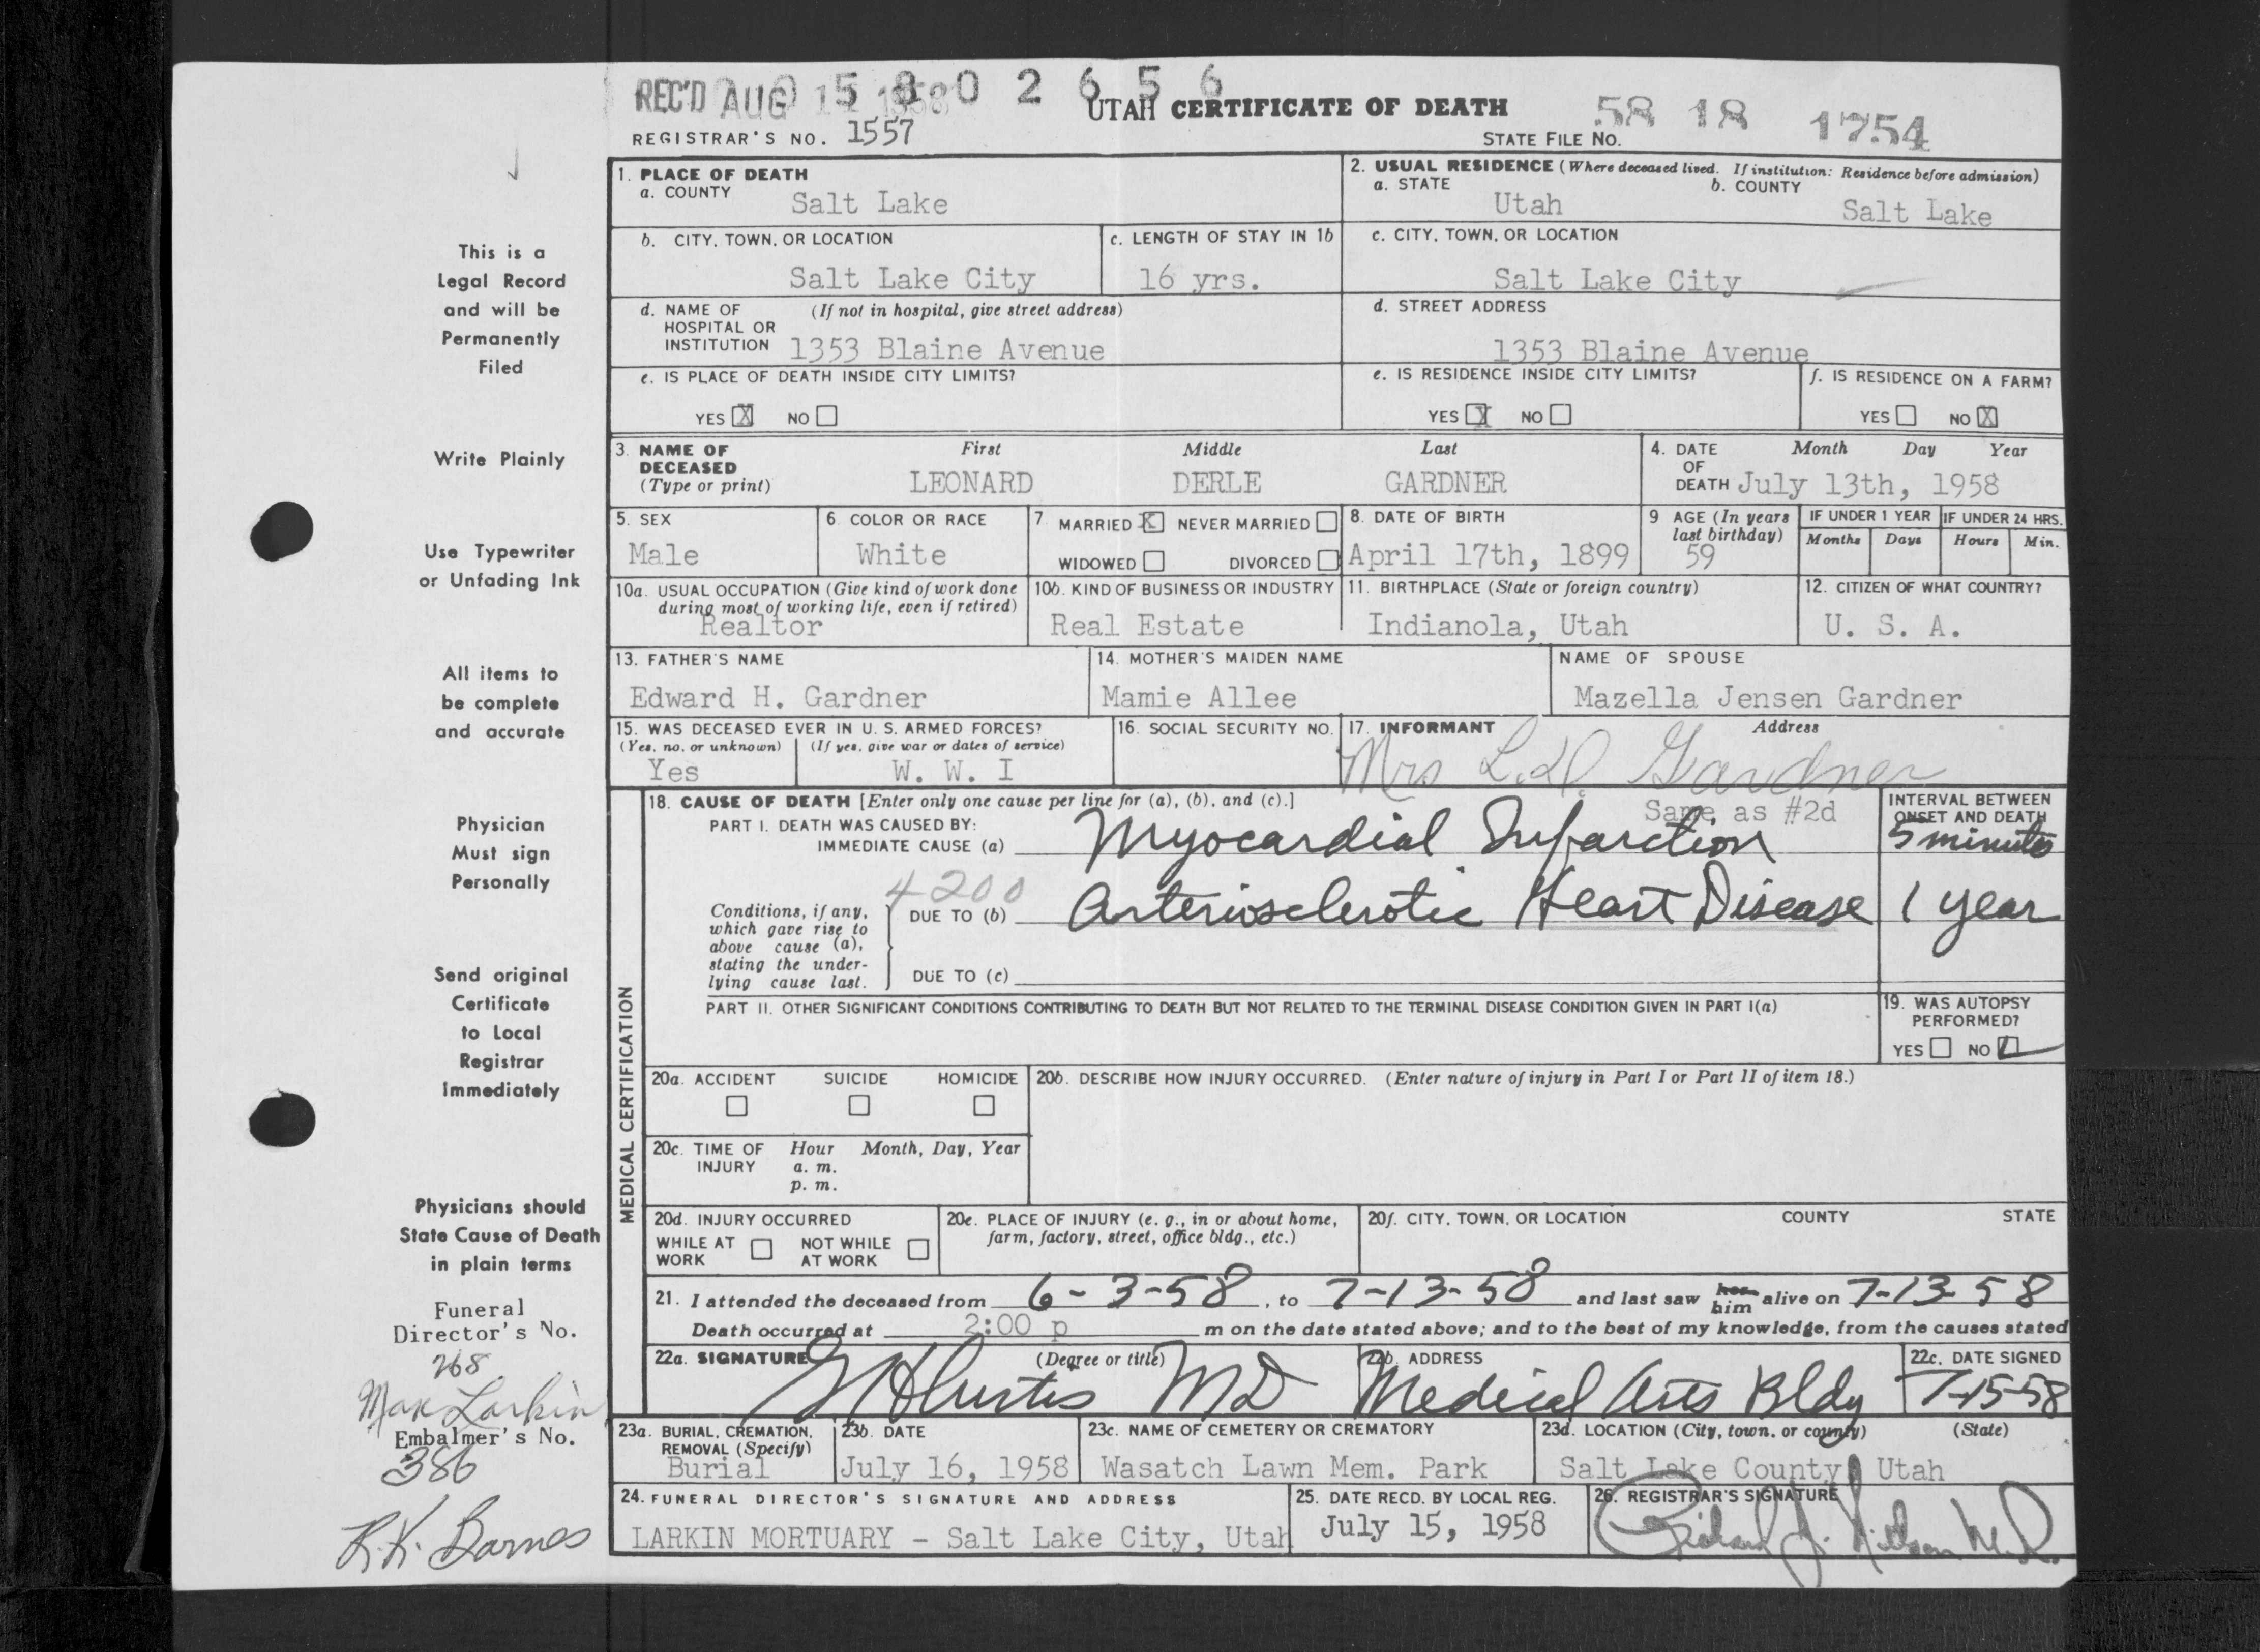 REC'D AUG 1958
0 5 8 0 2 6 5 6
UTAH CERTIFICATE OF DEATH
58 18 1754
REGISTRAR'S NO. 1557
STATE FILE NO.
1. PLACE OF DEATH
a. COUNTY
Salt Lake
2. USUAL RESIDENCE (Where deceased lived. If institution: Residence before admission)
a. STATE
Utah
b. COUNTY
Salt Lake
b. CITY, TOWN, OR LOCATION
Salt Lake City
c. LENGTH OF STAY IN 1b
16 yrs.
c. CITY, TOWN, OR LOCATION
Salt Lake City
d. NAME OF HOSPITAL OR INSTITUTION
(If not in hospital, give street address)
1353 Blaine Avenue
d. STREET ADDRESS
1353 Blaine Avenue
e. IS PLACE OF DEATH INSIDE CITY LIMITS?
YES X NO
e. IS RESIDENCE INSIDE CITY LIMITS?
YES X NO
f. IS RESIDENCE ON A FARM?
YES NO X
3. NAME OF DECEASED
(Type or print)
First Middle Last
LEONARD DERLE GARDNER
4. DATE OF DEATH
Month Day Year
July 13th, 1958
5. SEX
Male
6. COLOR OR RACE
White
7. MARRIED X NEVER MARRIED
WIDOWED DIVORCED
8. DATE OF BIRTH
April 17th, 1899
9 AGE (In years last birthday)
59
IF UNDER 1 YEAR
Months Days
IF UNDER 24 HRS.
Hours Min.
10a. USUAL OCCUPATION (Give kind of work done during most of working life, even if retired)
Realtor
10b. KIND OF BUSINESS OR INDUSTRY
Real Estate
11. BIRTHPLACE (State or foreign country)
Indianola, Utah
12. CITIZEN OF WHAT COUNTRY?
U. S. A.
13. FATHER'S NAME
Edward H. Gardner
14. MOTHER'S MAIDEN NAME
Mamie Allee
NAME OF SPOUSE
Mazella Jensen Gardner
15. WAS DECEASED EVER IN U. S. ARMED FORCES?
(Yes, no, or unknown) (If yes, give war or dates of service)
Yes W. W. I
16. SOCIAL SECURITY NO.
17. INFORMANT Address
Mrs L. D. Gardner
Same as #2d
MEDICAL CERTIFICATION
18. CAUSE OF DEATH [Enter only one cause per line for (a), (b), and (c).]
PART I. DEATH WAS CAUSED BY:
IMMEDIATE CAUSE (a) Myocardial Infarction
INTERVAL BETWEEN ONSET AND DEATH
5 minutes
4200
Conditions, if any, which gave rise to above cause (a), stating the underlying cause last.
DUE TO (b) Arteriosclerotic Heart Disease 1 year
DUE TO (c)
PART II. OTHER SIGNIFICANT CONDITIONS CONTRIBUTING TO DEATH BUT NOT RELATED TO THE TERMINAL DISEASE CONDITION GIVEN IN PART I(a)
19. WAS AUTOPSY PERFORMED?
YES NO
20a. ACCIDENT SUICIDE HOMICIDE
20b. DESCRIBE HOW INJURY OCCURRED. (Enter nature of injury in Part I or Part II of item 18.)
20c. TIME OF INJURY
Hour Month, Day, Year
a. m.
p. m.
20d. INJURY OCCURRED
WHILE AT WORK NOT WHILE AT WORK
20e. PLACE OF INJURY (e. g., in or about home, farm, factory, street, office bldg., etc.)
20f. CITY, TOWN, OR LOCATION COUNTY STATE
21. I attended the deceased from 6-3-58, to 7-13-58 and last saw her him alive on 7-13-58
Death occurred at 2:00 p m on the date stated above; and to the best of my knowledge, from the causes stated
22a. SIGNATURE (Degree or title)
Curtis MD
22b. ADDRESS
Medical Arts Bldg
22c. DATE SIGNED
7-15-58
23a. BURIAL, CREMATION, REMOVAL (Specify)
Burial
23b. DATE
July 16, 1958
23c. NAME OF CEMETERY OR CREMATORY
Wasatch Lawn Mem. Park
23d. LOCATION (City, town, or county) (State)
Salt Lake County, Utah
24. FUNERAL DIRECTOR'S SIGNATURE AND ADDRESS
LARKIN MORTUARY - Salt Lake City, Utah
25. DATE RECD. BY LOCAL REG.
July 15, 1958
26. REGISTRAR'S SIGNATURE
This is a
Legal Record
and will be
Permanently
Filed
Write Plainly
Use Typewriter
or Unfading Ink
All items to
be complete
and accurate
Physician
Must sign
Personally
Send original
Certificate
to Local
Registrar
Immediately
Physicians should
State Cause of Death
in plain terms
Funeral
Director's No.
268
Max Larkin
Embalmer's No.
386
R. K. Barnes